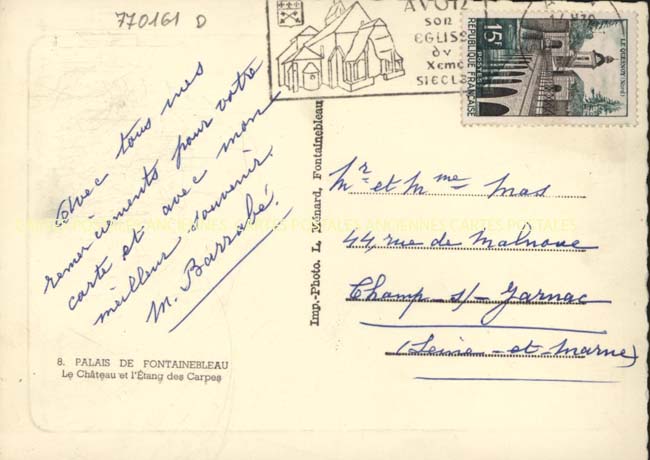 770161 D
AVON
SON
EGLISE
DU
Xeme
SIECLE
17H30
15F
REPUBLIQUE FRANÇAISE
POSTES
LE QUESNOY (Nord)
Avec tous mes
remerciements pour votre
carte et avec mon
meilleur souvenir.
M. Barrabé.
8. PALAIS DE FONTAINEBLEAU
Le Château et l'Étang des Carpes
Imp.-Photo. L. Ménard, Fontainebleau
Mr et Mme Mas
44 rue de Malnoue
Champ s/- Jarnac
(Seine-et-Marne)
CARTES POSTALES ANCIENNES CARTES POSTALES